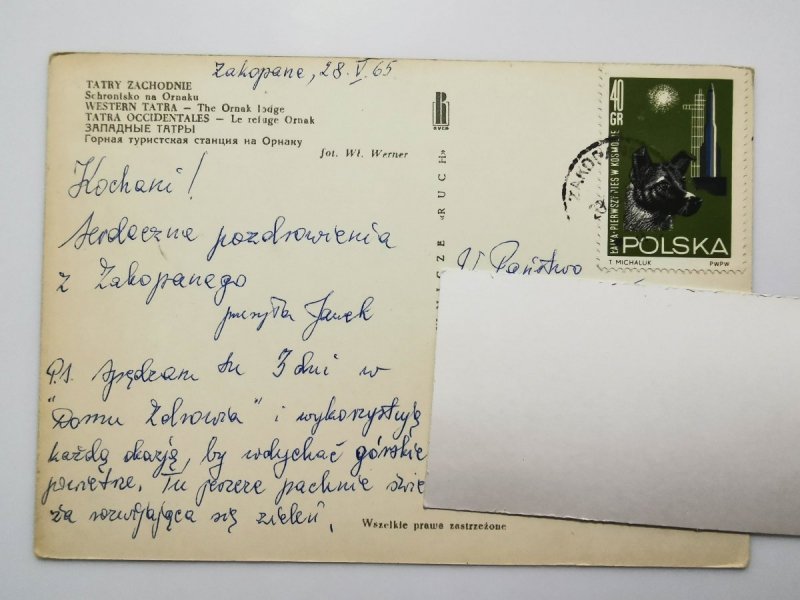 Zakopane, 28.V.65
TATRY ZACHODNIE
Schronisko na Ornaku
WESTERN TATRA — The Ornak lodge
TATRA OCCIDENTALES — Le refuge Ornak
ЗАПАДНЫЕ ТАТРЫ
Горная туристская станция на Орнаку
fot. Wł. Werner
Kochani!
Serdeczne pozdrowienia
z Zakopanego
przesyła Janek
P.S. Spędzam tu 3 dni w
"Domu Zdrowia" i wykorzystuję
każdą okazję, by wdychać górskie
powietrze. Tu jeszcze pachnie
rozwijająca się zieleń.
Wszelkie prawa zastrzeżone
RUCH
«RUCH»
W Państwo
ZAKOP
40
GR
ŁAJKA-PIERWSZY PIES W KOSMOSIE
POLSKA
T. MICHALUK
PWPW